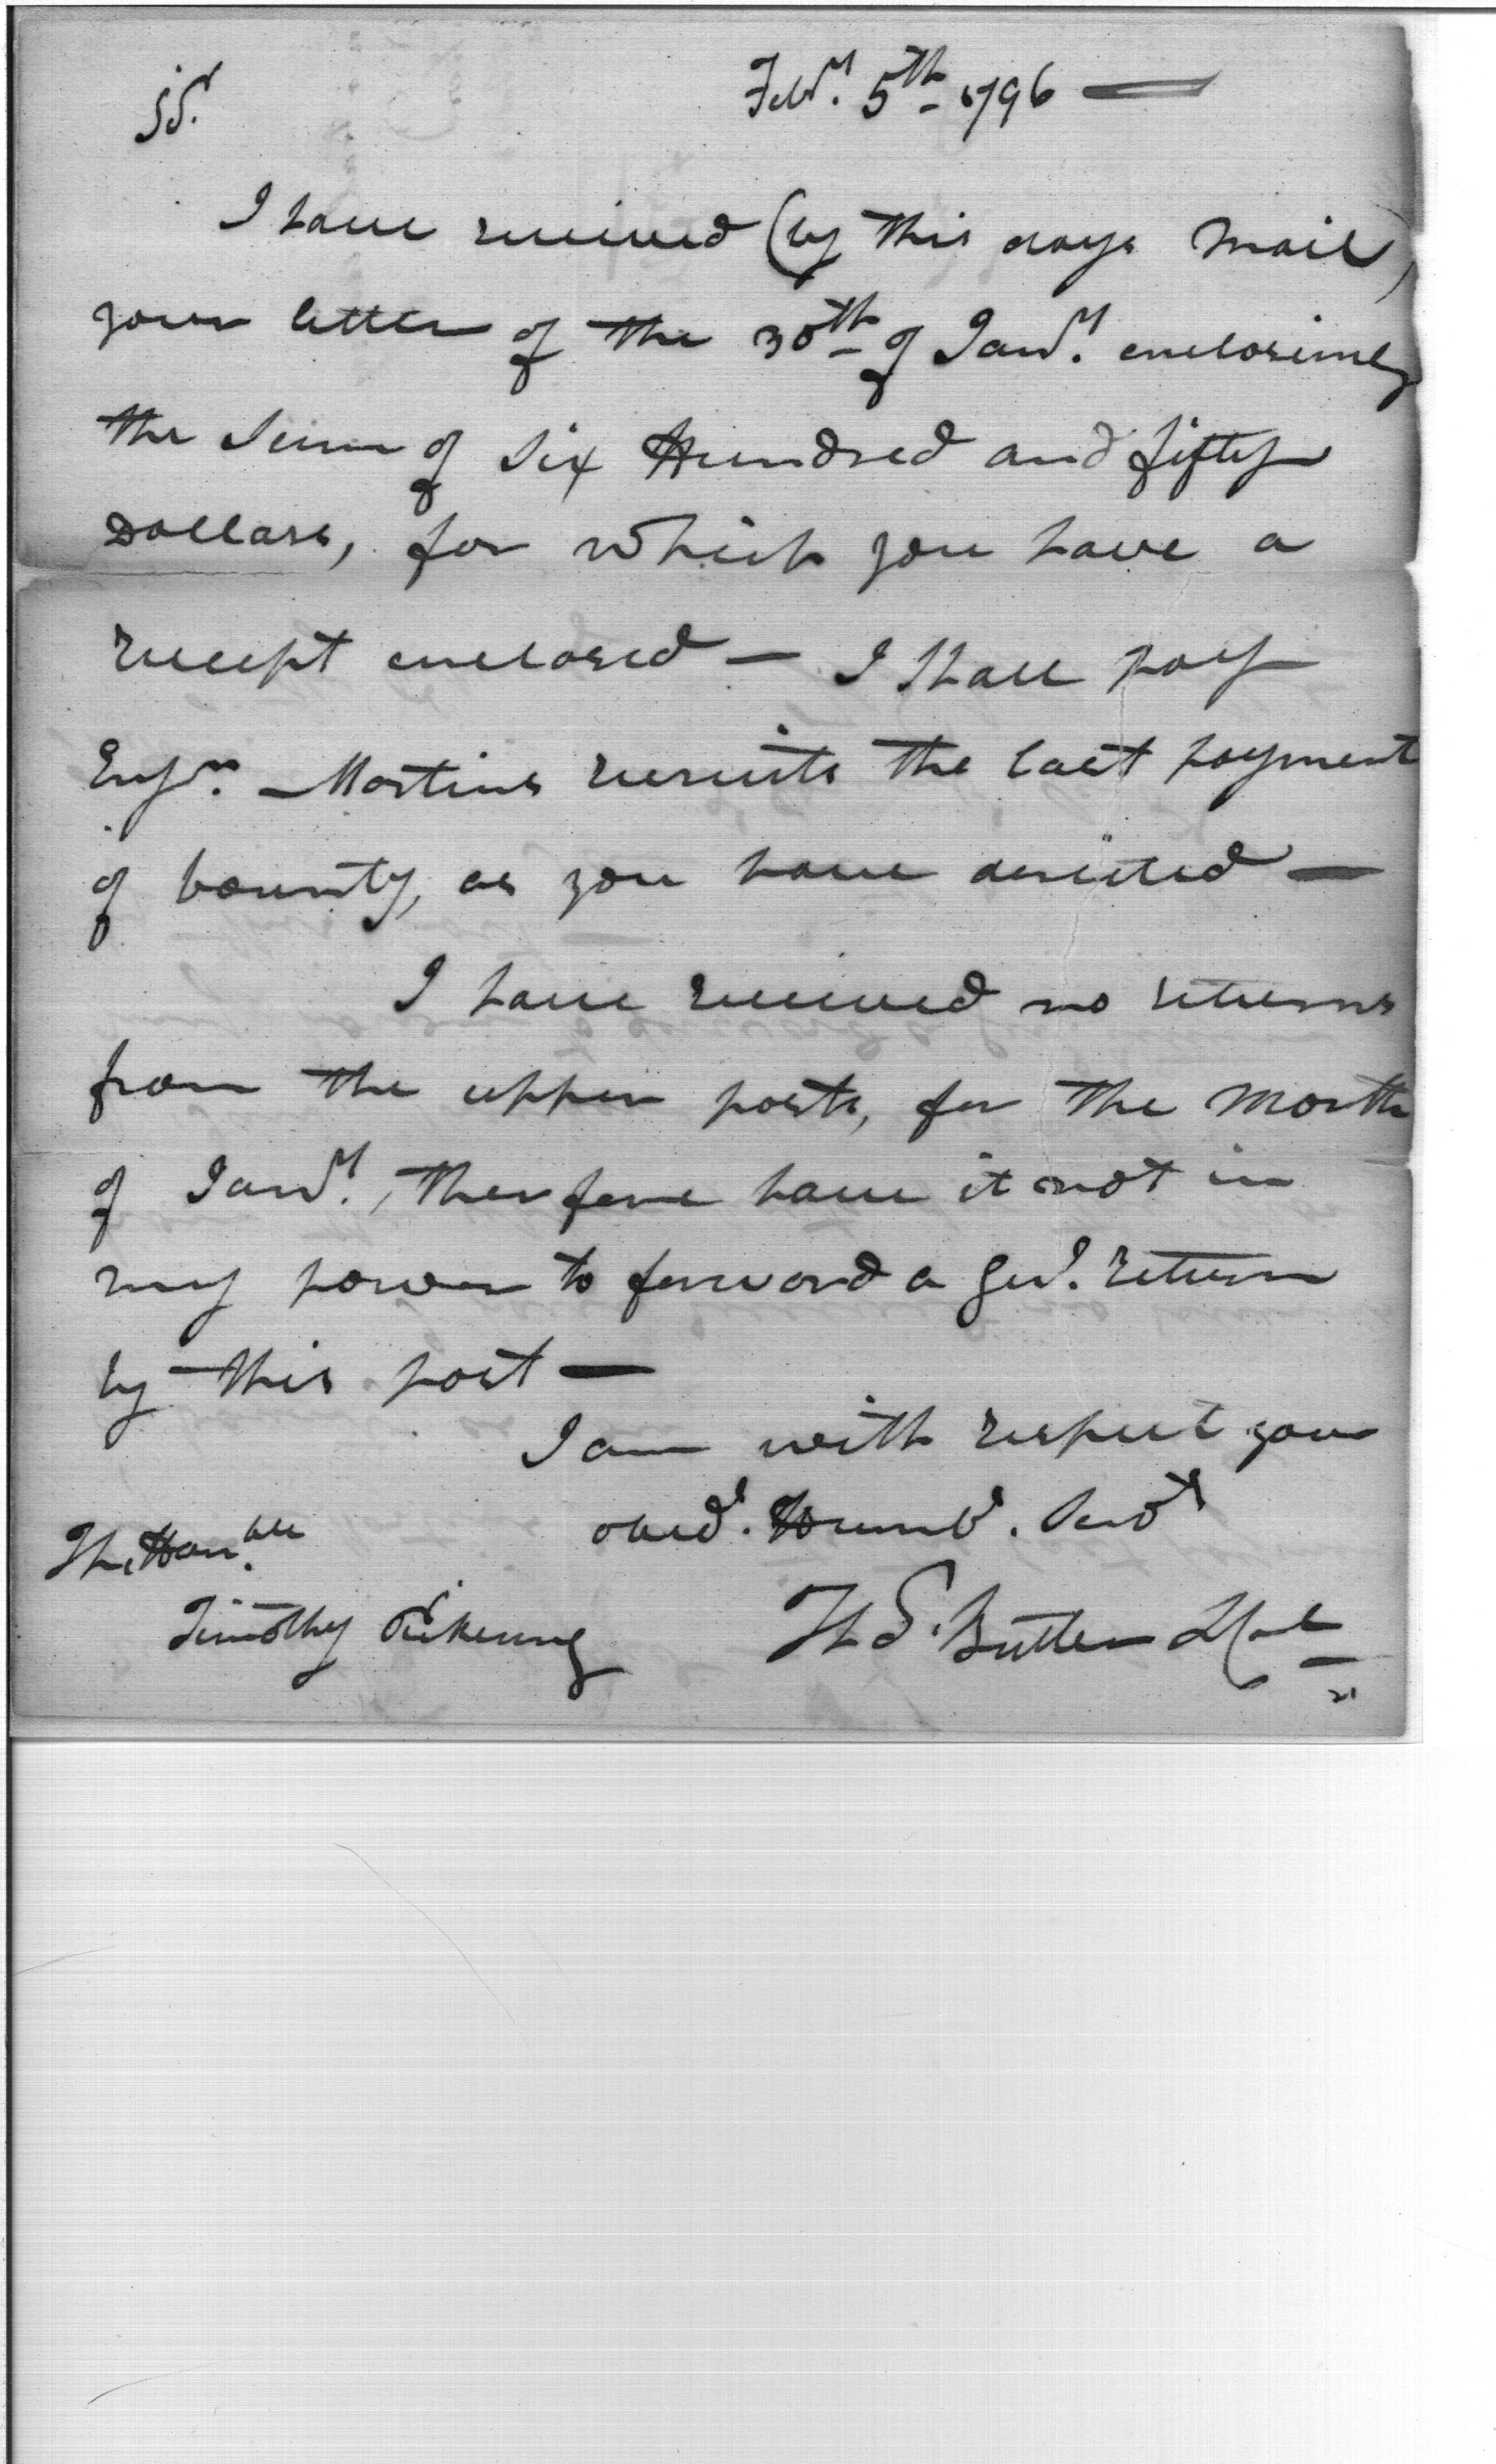 Sir. Feby. 5th 1796 —
I have received (by this days mail)
your letter of the 30th of Jany. enclosing
the Sum of Six Hundred and fifty
Dollars, for which you have a
receipt enclosed — I shall pay
Ensn. Martins recruits the last payment
of bounty, as you have directed —
I have received no returns
from the upper posts, for the Month
of Jany., therefore have it not in
my power to forward a Genl. return
by this post —
I am with respect your
obedt. Humbl. Servt
The Honble.
Timothy Pickering
Ths. Butler